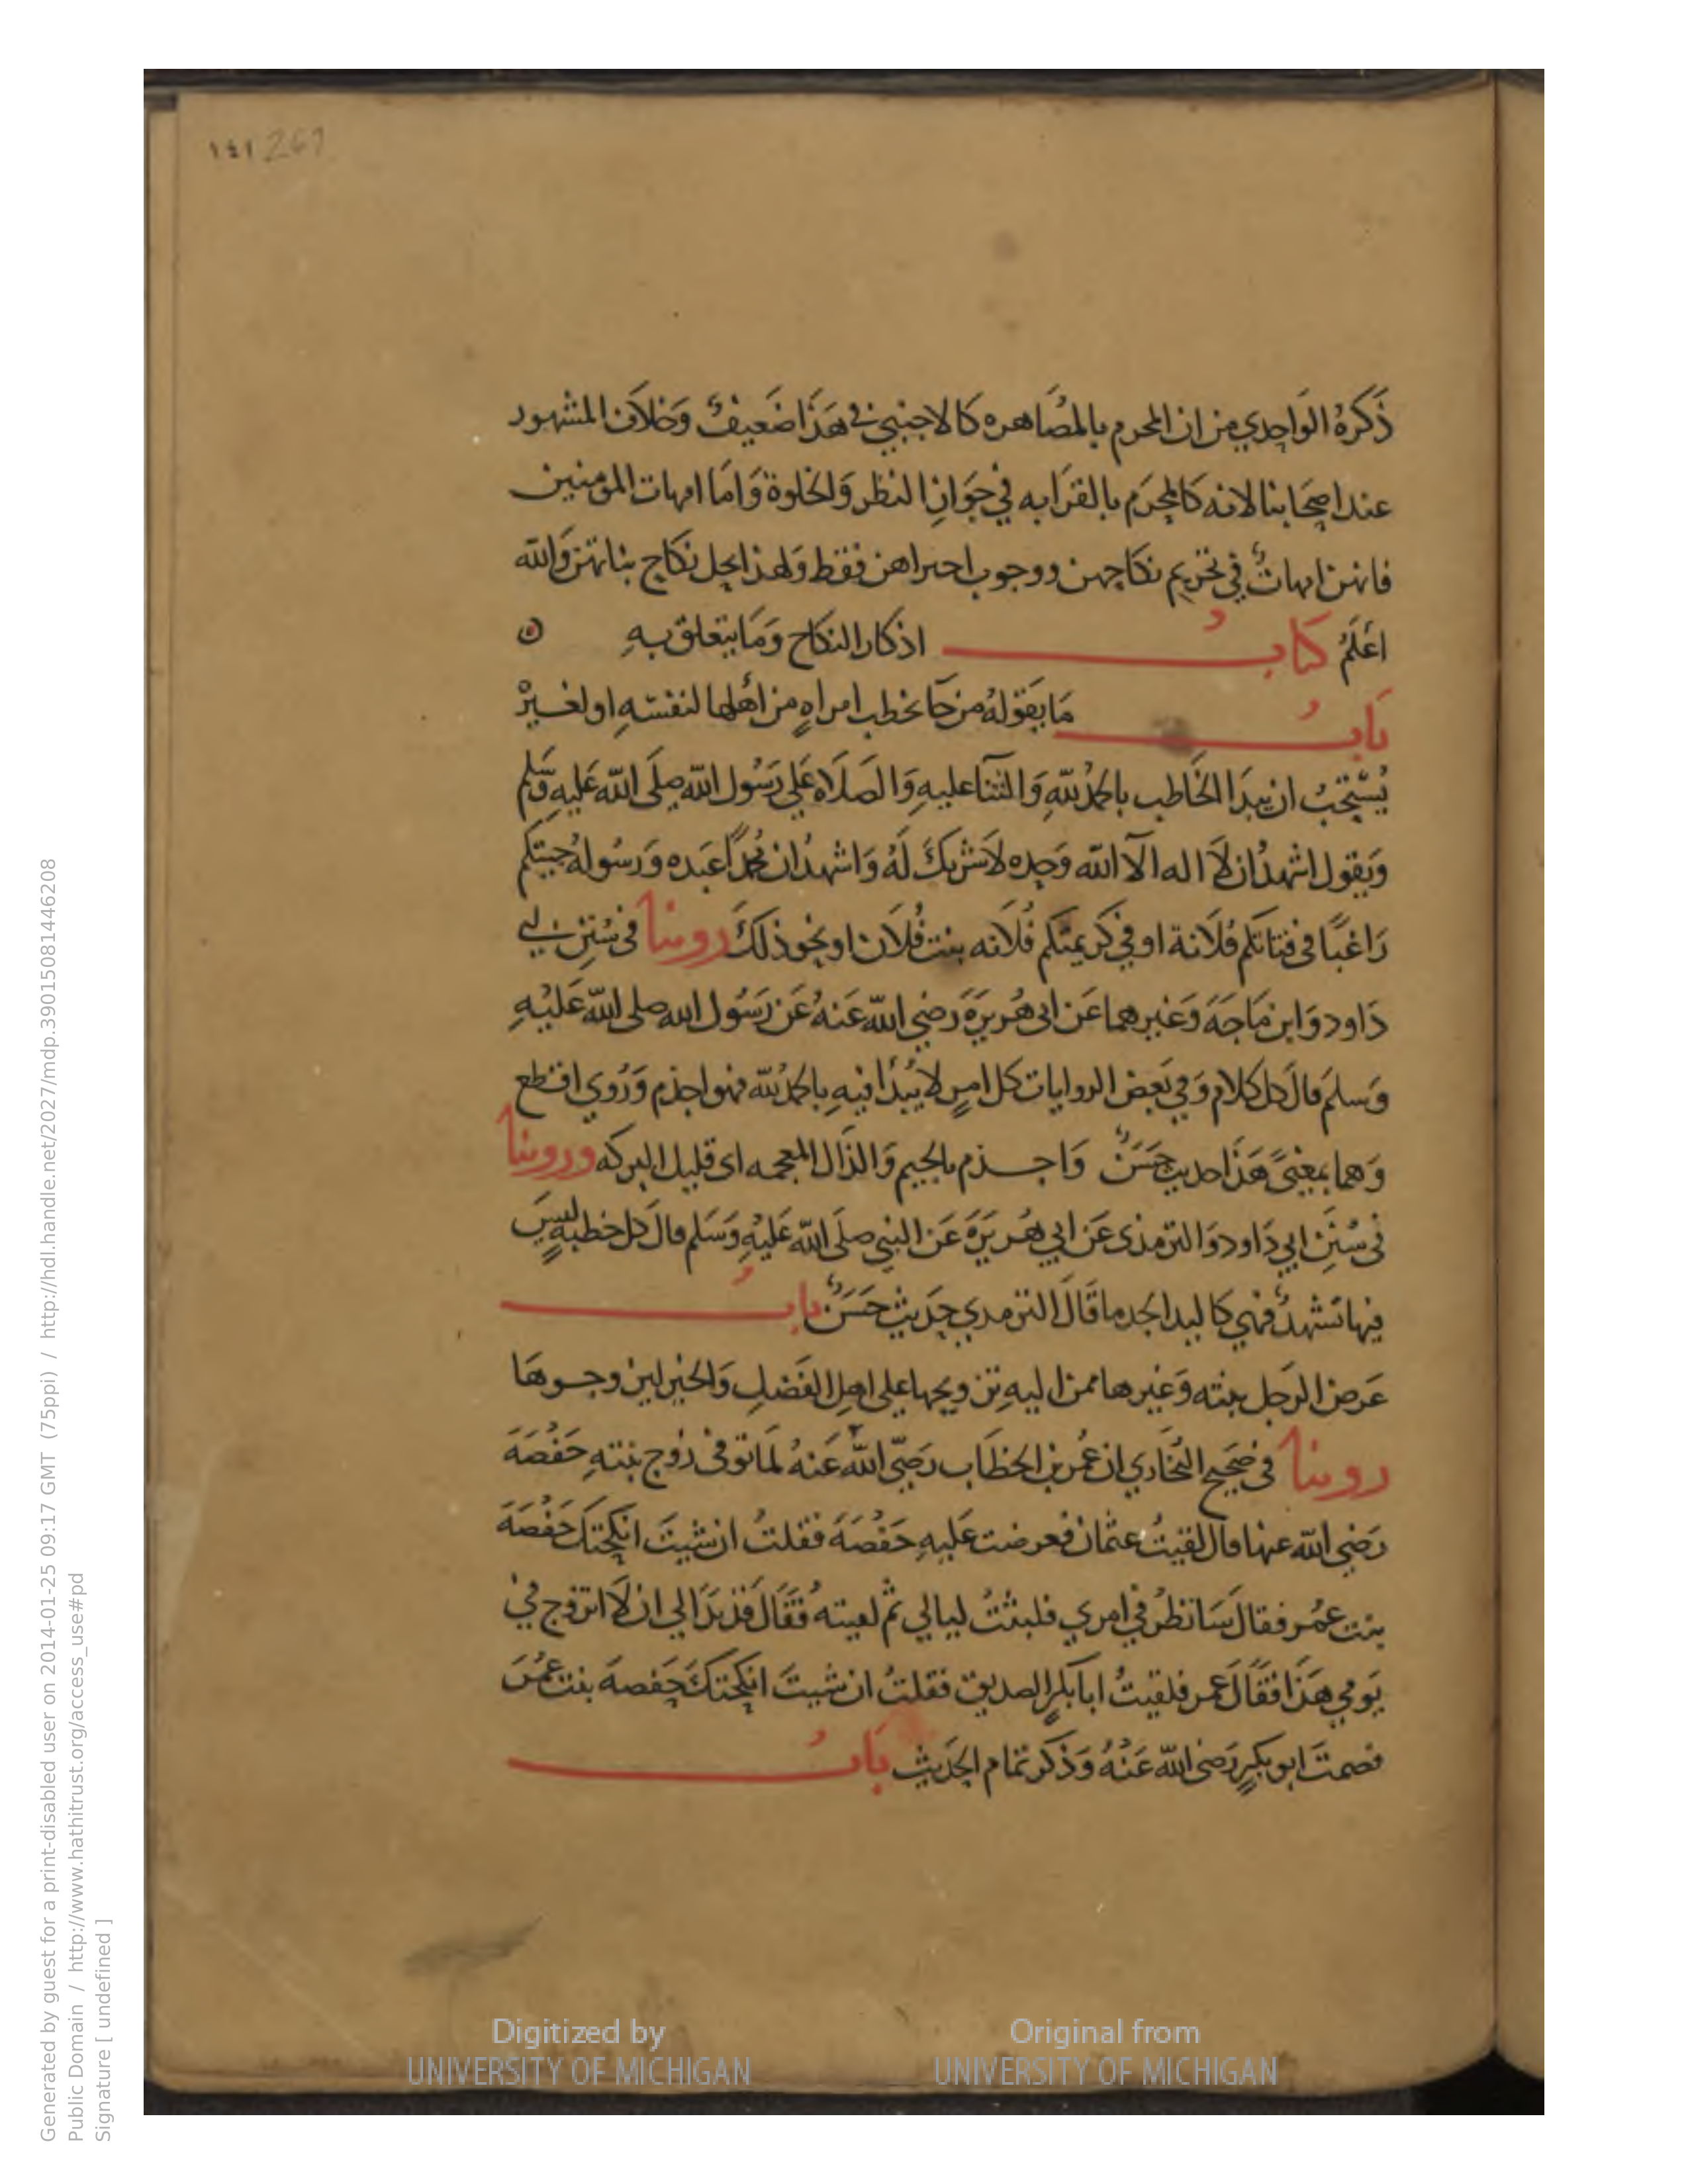 ١٤١ 261
ذَكَرهُ الوَاحِدي من ان المحرم بالمصَاهره كالاجنبي في هَذَا ضَعيفٌ وَخلاف المشهور
عند اصحَابنا لانه كالمحرَم بالقرَابه في جَوَازِ النظر وَالخلوة وَامَا امهات المومنين
فانهن امهاتٌ في تحريم نكاحهن ووجوب احتراهن فقط وَلهذا يحل نكاح بناتهن وَالله
اعَلَمُ كتابُ اذكار النكاح وَمَا يتعلق بهِ
بَابُ مَا يقَولهُ من جَا يخطب امراهٍ من اهَلها لنفسَهِ او لغيرْ
يُسْتحَبُ ان يبدَا الخَاطب بالحمدُ للهِ وَالثنآ عليهِ وَالصَلاَه عَلي رَسُول الله صلَى الله عَليهِ وَسَلم
وَيقول اشهدُ ان لاَ اله الآ الله وَحده لاَ شريكَ لَهُ وَاشهدُ ان محُمدًا عَبده وَرسُولهُ جيتكم
رَاغبًا في فتاتكم فلاَنة او في كَريمتكم فُلاَنه بنت فُلاَن او نحو ذلكَ روينا في سُنَنِ ابي
دَاود وَابن مَاجَهَ وَغيرهما عَن ابي هُريَرَةَ رَضي الله عَنهُ عَن رَسُول الله صلى الله عَليْهِ
وَسلمَ قالَ كل كلام وَفي بَعض الروايات كل امرٍ لا يُبدَأ فيهِ بالحمدُ لله فهو اجذم وَرُوي اقطع
وَهما بمعِنيً هَذَا حديث حَسَنٌ وَاجذم بالجيم وَالذَال المعجمه اى قليل البركه وروينا
في سُنَنِ ابي دَاود وَالترمذى عَن ابي هُريَرَةَ عَن النبي صلَى الله عَليْهِ وَسَلم قالَ كل خطبهٍ ليسَ
فيها تَشهدٌ فهي كاليد الجدما قَالَ الترمدي حَديث حَسَنٌ بابُ
عَرض الرَجل بنته وَغيرها ممن اليهِ تزويجها على اهلِ الفَضلِ وَالخير ليزوجوهَا
روينا في صَحيحِ البُخَاري ان عُمر بن الخطَاب رَضيَ اللهَ عَنهُ لمَا توفى زوج بنتهِ حَفُصَهَ
رَضي الله عنها قال لقيتُ عثمان فعرضت عَليهِ حَفُصَهَ فقلتُ ان شيتَ انكحتكَ حَفُصَهَ
بنت عمُر فقال سَانظرُ في امري فلبثتُ ليالي ثم لقيته فقَالَ قد بَدَا لي ان لاَ اتزوج في
يَومي هَذَا فقَالَ عَمر فلقيتُ ابا بكرٍ الصديق فقلتُ ان شيتَ انكحتكَ حَفصهَ بنت عمُرَ
فصمتَ ابو بكرٍ رَضي الله عَنْهُ وَذكر تمَام الحَديثِ بَابُ
Digitized by
UNIVERSITY OF MICHIGAN
Original from
UNIVERSITY OF MICHIGAN
Generated by guest for a print-disabled user on 2014-01-25 09:17 GMT (75ppi) / http://hdl.handle.net/2027/mdp.39015081446208
Public Domain / http://www.hathitrust.org/access_use#pd
Signature [ undefined ]